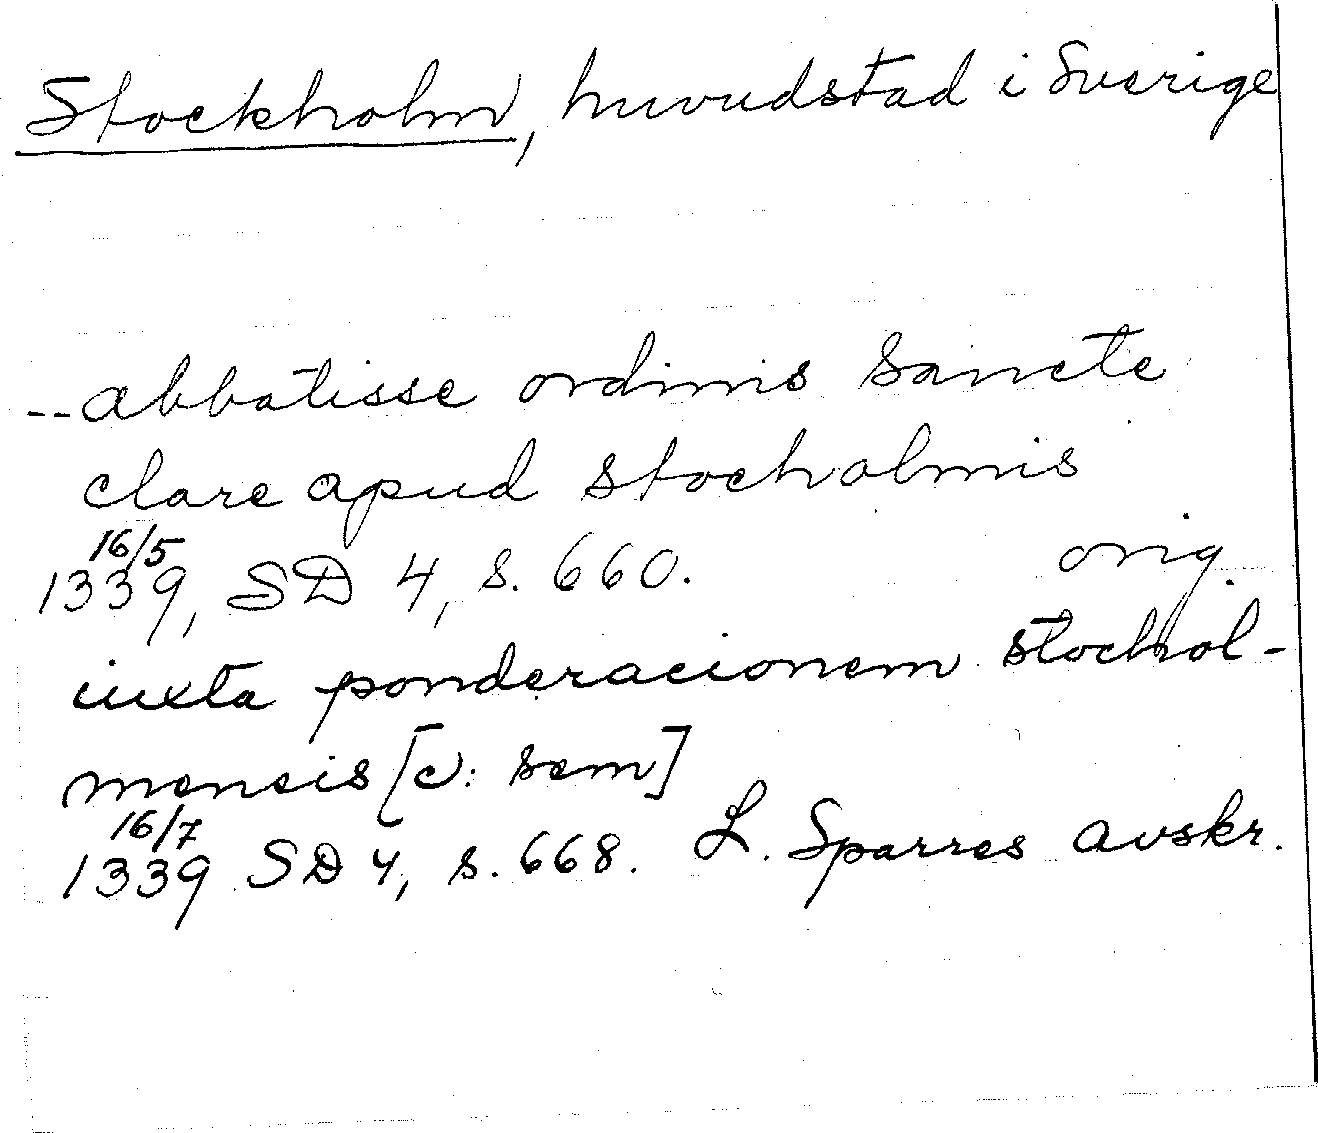 Stockholm, huvudstad i Sverige
-- abbatisse ordinis sancte
clare apud stocholmis
16/5
1339, SD 4, s. 660. orig.
iuxta ponderacionem stochol-
mensis [c: sem]
16/7
1339 SD 4, s. 668. L. Sparres avskr.